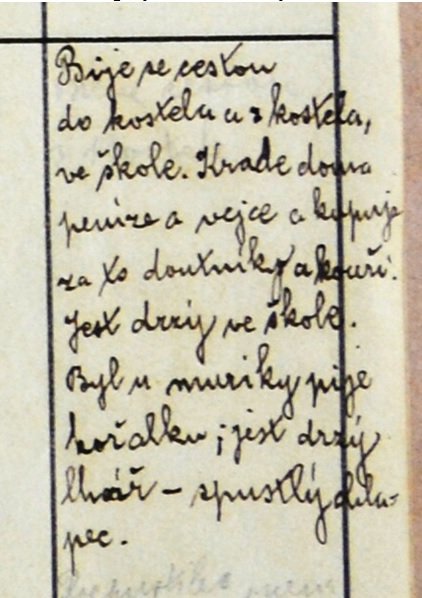 Bije se cestou
do kostela a z kostela,
ve škole. Krade doma
peníze a vejce a kupuje
za to doutníky a kouří.
Jest drzý ve škole.
Byl u muziky pije
kořalku; jest drzý
lhář – spustlý chla-
pec.